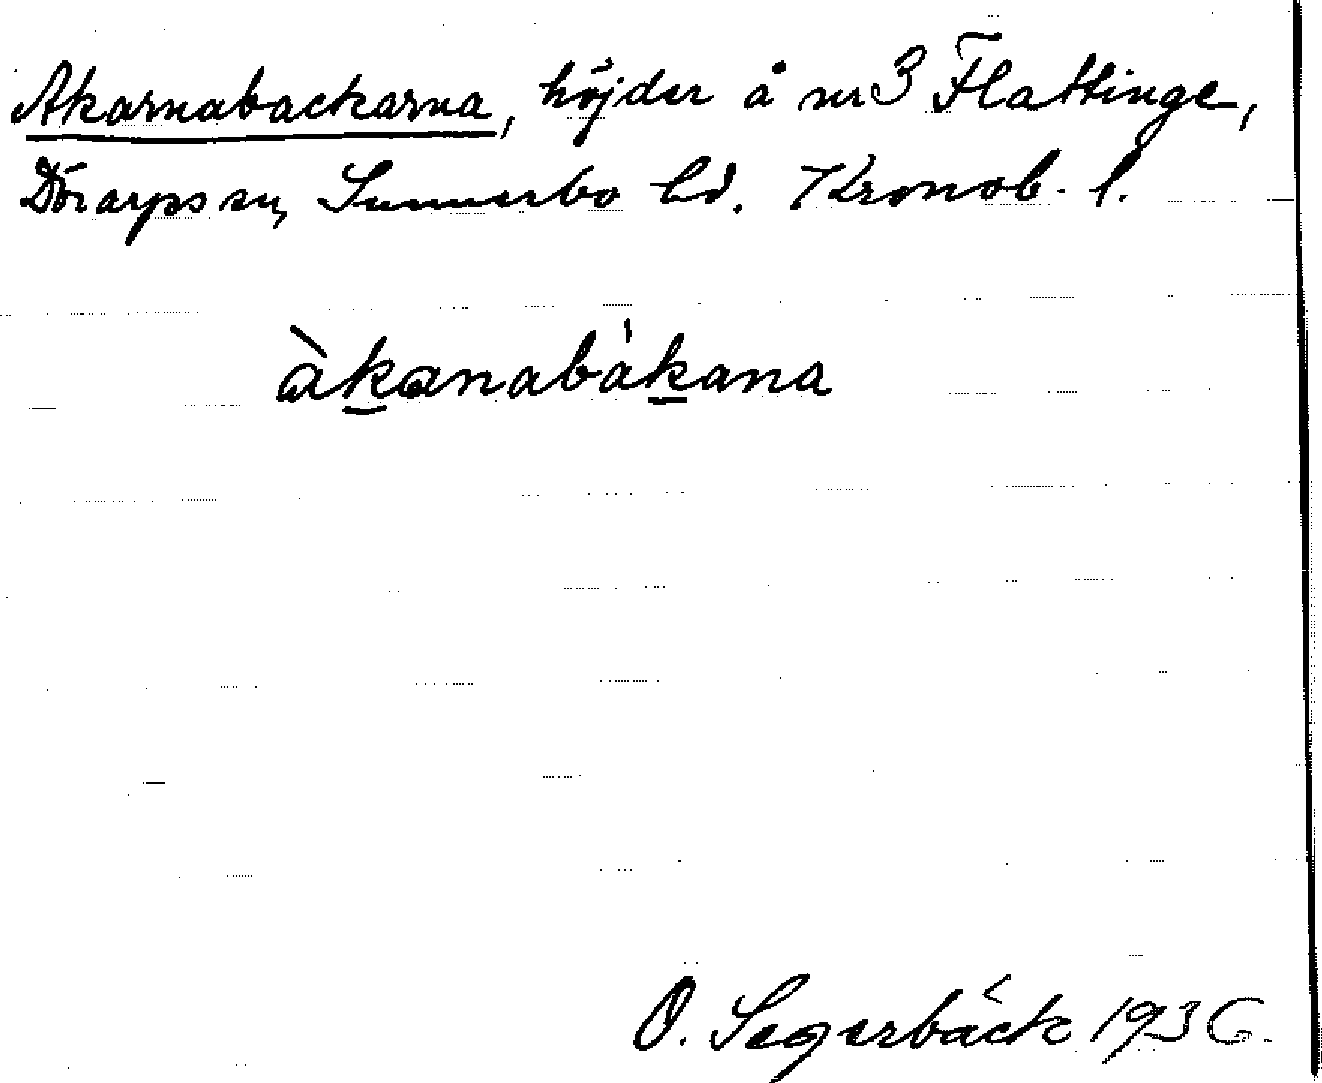 Akarnabackarna, höjder å nr 3 Flattinge,
Dörarps sn, Sunnerbo hd. Kronob. l.
àkanabákana
O. Segerbäck 1936.